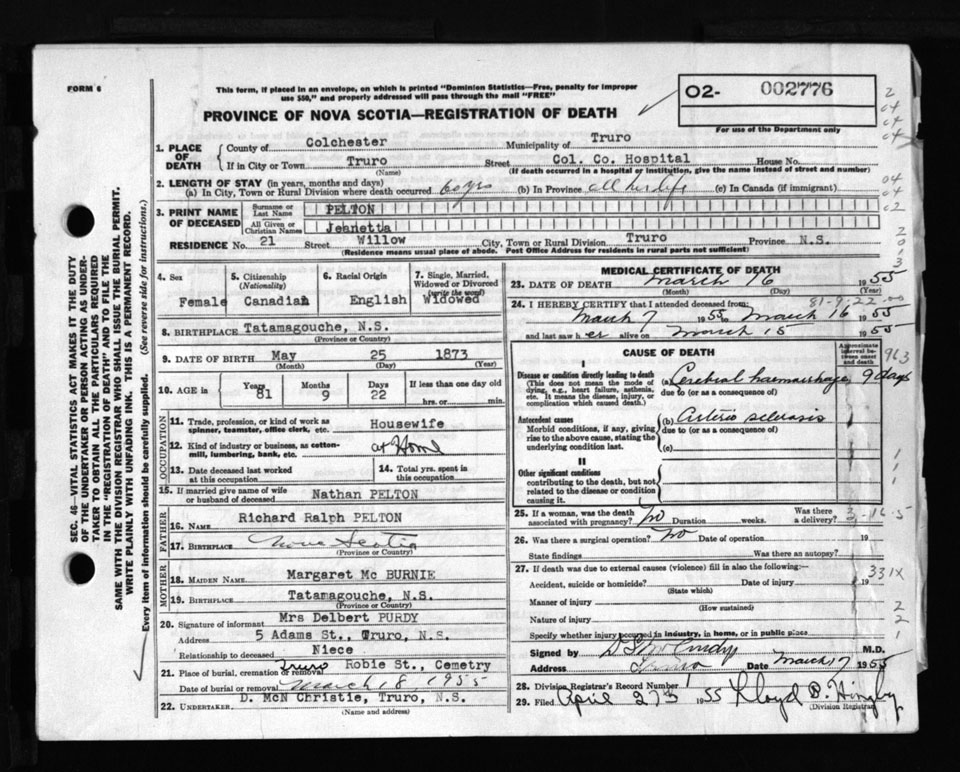 FORM 6
This form, if placed in an envelope, on which is printed "Dominion Statistics—Free, penalty for improper
use $50," and properly addressed will pass through the mail "FREE"
PROVINCE OF NOVA SCOTIA—REGISTRATION OF DEATH
02- 002776
For use of the Department only
1. PLACE OF DEATH
County of Colchester Municipality of Truro
If in City or Town Truro Street Col. Co. Hospital House No.
(Name) (If death occurred in a hospital or institution, give the name instead of street and number)
2. LENGTH OF STAY (in years, months and days)
(a) In City, Town or Rural Division where death occurred 60 yrs (b) In Province all her life (c) In Canada (if immigrant)
3. PRINT NAME OF DECEASED
Surname or Last Name PELTON
All Given or Christian Names Jeanetta
RESIDENCE No. 21 Street Willow City, Town or Rural Division Truro Province N.S.
(Residence means usual place of abode. Post Office Address for residents in rural parts not sufficient)
4. Sex Female
5. Citizenship (Nationality) Canadian
6. Racial Origin English
7. Single, Married, Widowed or Divorced (write the word) Widowed
8. BIRTHPLACE Tatamagouche, N.S.
(Province or Country)
9. DATE OF BIRTH May 25 1873
(Month) (Day) (Year)
10. AGE in Years 81 Months 9 Days 22 If less than one day old
hrs. or min.
OCCUPATION
11. Trade, profession, or kind of work as spinner, teamster, office clerk, etc. Housewife
12. Kind of industry or business, as cotton-mill, lumbering, bank, etc. at Home
13. Date deceased last worked at this occupation
14. Total yrs. spent in this occupation
15. If married give name of wife or husband of deceased Nathan PELTON
FATHER
16. NAME Richard Ralph PELTON
17. BIRTHPLACE Nova Scotia
(Province or Country)
MOTHER
18. MAIDEN NAME Margaret Mc BURNIE
19. BIRTHPLACE Tatamagouche, N.S.
(Province or Country)
20. Signature of informant Mrs Delbert PURDY
Address 5 Adams St., Truro, N.S.
Relationship to deceased Niece
21. Place of burial, cremation or removal Truro Robie St., Cemetry
Date of burial or removal March 18 1955
22. UNDERTAKER D. McN Christie, Truro, N.S.
(Name and address)
MEDICAL CERTIFICATE OF DEATH
23. DATE OF DEATH March 16 1955
(Month) (Day) (Year)
81-9-22
24. I HEREBY CERTIFY that I attended deceased from:
March 7 1955 to March 16 1955
and last saw her alive on March 15 1955
CAUSE OF DEATH
Approximate interval between onset and death
963
I
Disease or condition directly leading to death
(This does not mean the mode of dying, e.g., heart failure, asthenia, etc. It means the disease, injury, or complication which caused death.)
(a) Cerebral haemorrhage 9 days
due to (or as a consequence of)
Antecedent causes
Morbid conditions, if any, giving rise to the above cause, stating the underlying condition last.
(b) Arterio sclerosis
due to (or as a consequence of)
(c)
II
Other significant conditions
contributing to the death, but not related to the disease or condition causing it.
25. If a woman, was the death associated with pregnancy? No Duration weeks. Was there a delivery?
26. Was there a surgical operation? No Date of operation 19
State findings Was there an autopsy?
27. If death was due to external causes (violence) fill in also the following:—
331X
Accident, suicide or homicide? Date of injury 19
(State which)
Manner of injury
(How sustained)
Nature of injury
Specify whether injury occurred in industry, in home, or in public place
Signed by M.D.
Address Truro Date March 17 1955
28. Division Registrar's Record Number
29. Filed April 1955
(Division Registrar)
SEC. 46—VITAL STATISTICS ACT MAKES IT THE DUTY
OF THE UNDERTAKER OR PERSON ACTING AS UNDER-
TAKER TO OBTAIN ALL THE PARTICULARS REQUIRED
IN THE "REGISTRATION OF DEATH" AND TO FILE THE
SAME WITH THE DIVISION REGISTRAR WHO SHALL ISSUE THE BURIAL PERMIT.
WRITE PLAINLY WITH UNFADING INK. THIS IS A PERMANENT RECORD.
Every item of information should be carefully supplied. (See reverse side for instructions.)